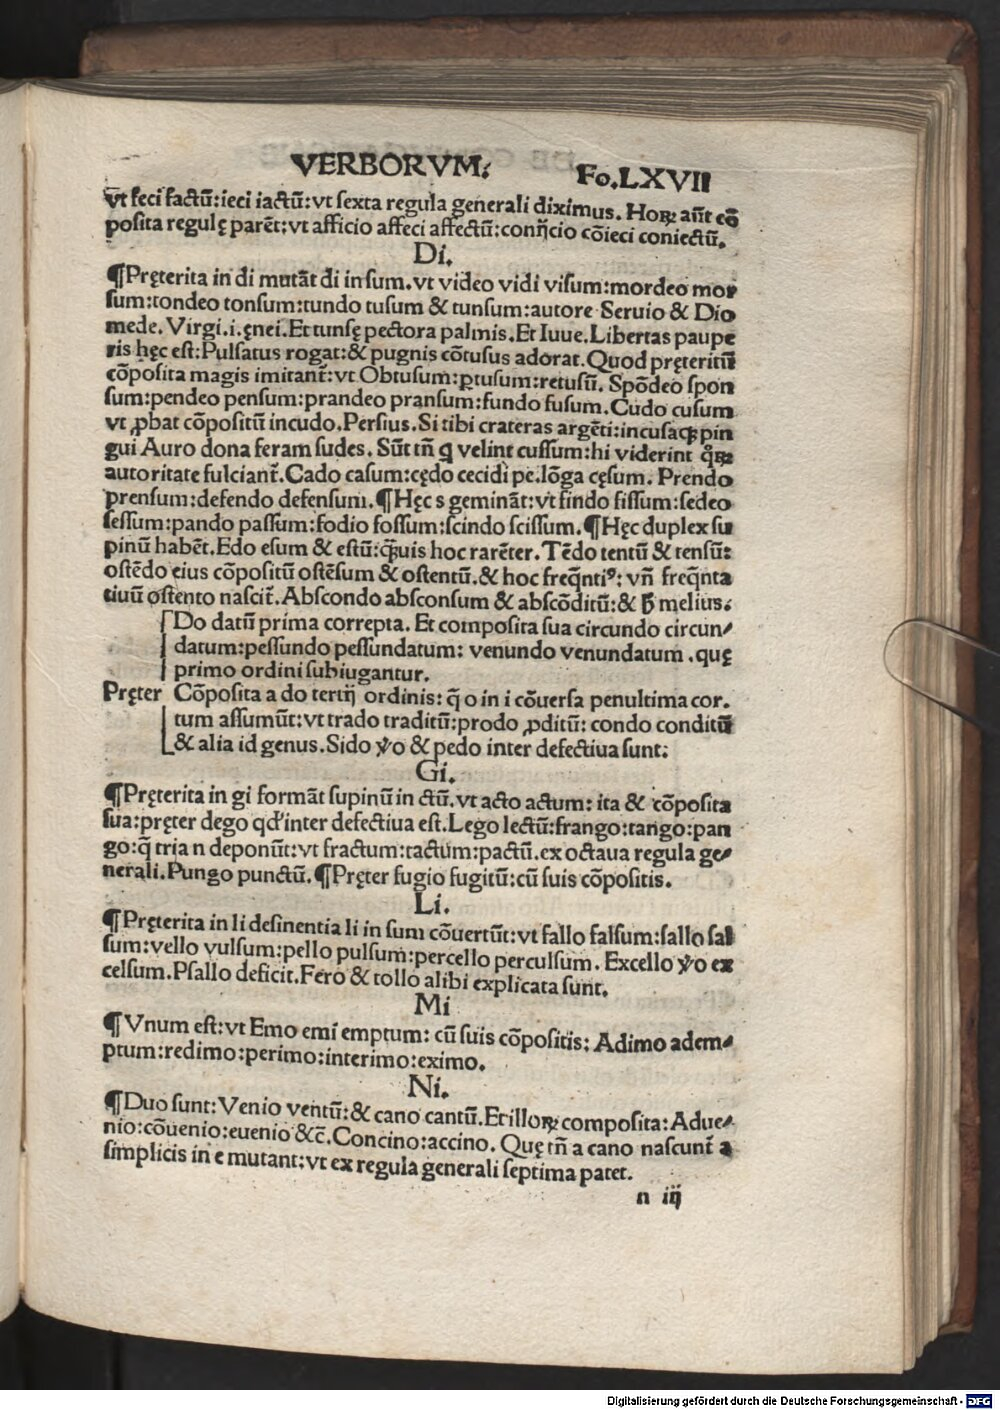 VERBORVM. Fo.LXVII
vt feci factū:ieci iactū:vt sexta regula generali diximus. Hoꝝ aūt cō
posita regulę parēt:vt afficio affeci affectū:conĳcio cōieci coniectū.
Di.
¶Pręterita in di mutāt di in sum.vt video vidi visum:mordeo mor
sum:tondeo tonsum:tundo tusum & tunsum:autore Seruio & Dio
mede.Virgi.i.ęnei.Et tunsę pectora palmis.Et Iuue.Libertas paupe
ris hęc est:Pulsatus rogat:& pugnis cōtusus adorat.Quod pręteritū
cōposita magis imitant̄:vt Obtusum:ꝑtusum:retusū. Spōdeo spon
sum:pendeo pensum:prandeo pransum:fundo fusum.Cudo cusum
vt ꝓbat cōpositū incudo.Persius.Si tibi crateras argēti:incusaqꝫ pin
gui Auro dona feram sudes. Sūt tn̄ q velint cussum:hi viderint q̊ꝝ
autoritate fulciant̄.Cado casum:cędo cecidi pe.lōga cęsum. Prendo
prensum:defendo defensum.¶Hęc s gemināt:vt findo fissum:sedeo
sessum:pando passum:fodio fossum:scindo scissum.¶Hęc duplex su
pinū habēt.Edo esum & estū:q̄uis hoc rarēter. Tēdo tentū & tensū:
ostēdo eius cōpositū ostēsum & ostentū.& hoc freq̄nti⁹: vn̄ freq̄nta
tiuū ostento nascit̄.Abscondo absconsum & abscōditū:& ħ melius.
Do datū prima correpta. Et composita sua circundo circun⸗
datum:pessundo pessundatum: venundo venundatum .quę
primo ordini subiugantur.
Pręter Cōposita a do tertĳ ordinis: q̄ o in i cōuersa penultima cor.
tum assumūt:vt trado traditū:prodo ꝓditū: condo conditū
& alia id genus.Sido ꝟo & pedo inter defectiua sunt.
Gi.
¶Pręterita in gi formāt supinū in ctū.vt acto actum: ita & cōposita
sua:pręter dego qd' inter defectiua est.Lego lectū:frango:tango:pan
go:q̄ tria n deponūt:vt fractum:tactum:pactū.ex octaua regula ge⸗
nerali.Pungo punctū.¶Pręter fugio fugitū:cū suis cōpositis.
Li.
¶Pręterita in li desinentia li in sum cōuertūt:vt fallo falsum:sallo sal
sum:vello vulsum:pello pulsum:percello perculsum. Excello ꝟo ex
celsum.Psallo deficit.Fero & tollo alibi explicata sunt.
Mi
¶Vnum est:vt Emo emi emptum: cū suis cōpositis: Adimo adem⸗
ptum:redimo:perimo:interimo:eximo.
Ni.
¶Duo sunt:Venio ventū:& cano cantū.Et illoꝝ composita:Adue⸗
nio:cōuenio:euenio &c̄.Concino:accino. Quę tn̄ a cano nascunt̄ a
simplicis in e mutant:vt ex regula generali septima patet.
n iĳ
Digitalisierung gefördert durch die Deutsche Forschungsgemeinschaft - DFG